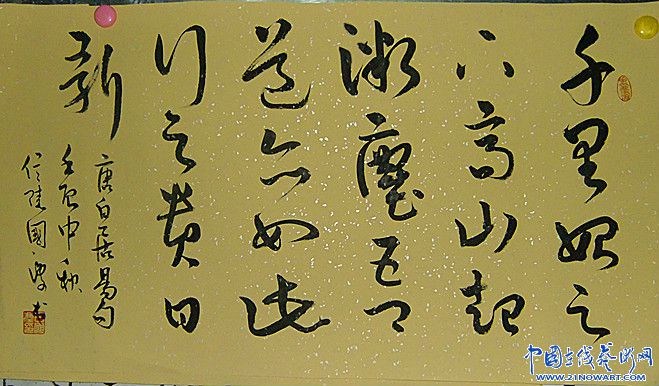 千里始足
下高山起
微塵吾
道亦如此
行之貴日
新
唐白居易句
壬辰中秋
國 書
中国在线艺术网
WWW.21NOWART.COM